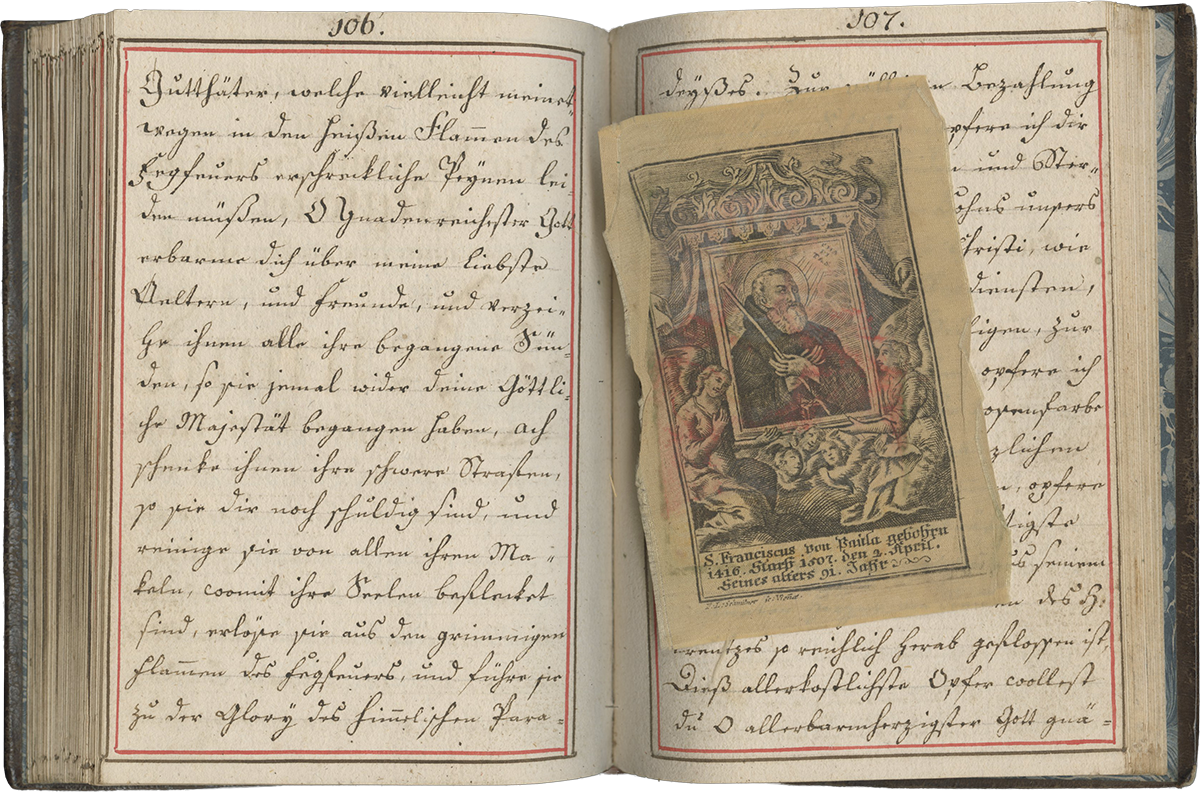 106.
Gutthäter, welche vielleicht meinet-
wegen in den heißen Flammen des
Fegfeuers erschreckliche Peynen lei-
den müßen, O Gnadenreichester Gott
erbarme dich über meine liebste
Aeltern, und Freunde, und verzei-
he ihnen alle ihre begangene Sün-
den, so sie jemal wider deine Göttli-
che Majestät begangen haben, ach
schenke ihnen ihre schwere Straffen,
so sie dir noch schuldig sind, und
reinige sie von allen ihren Ma-
keln, womit ihre Seelen beflecket
sind, erlöse sie aus den grimmigen
Flammen des Fegfeuers, und führe sie
zu der Glory des himmelischen Para-
107.
deyßes. Zur Bezahlung
opfere ich dir
und Ster-
Sohns unsers
Christi, wie
diensten,
zur
opfere ich
Rosenfarbe
opfere
seinem
des H:
so reichlich herab geflossen ist,
Dieß allerkostlichste Opfer wollest
du O allerbarmherzigster Gott gnä-
S. Franciscus von Paula gebohrn
1416. Starb 1507. den 2. April.
Seines alters 91. Jahr